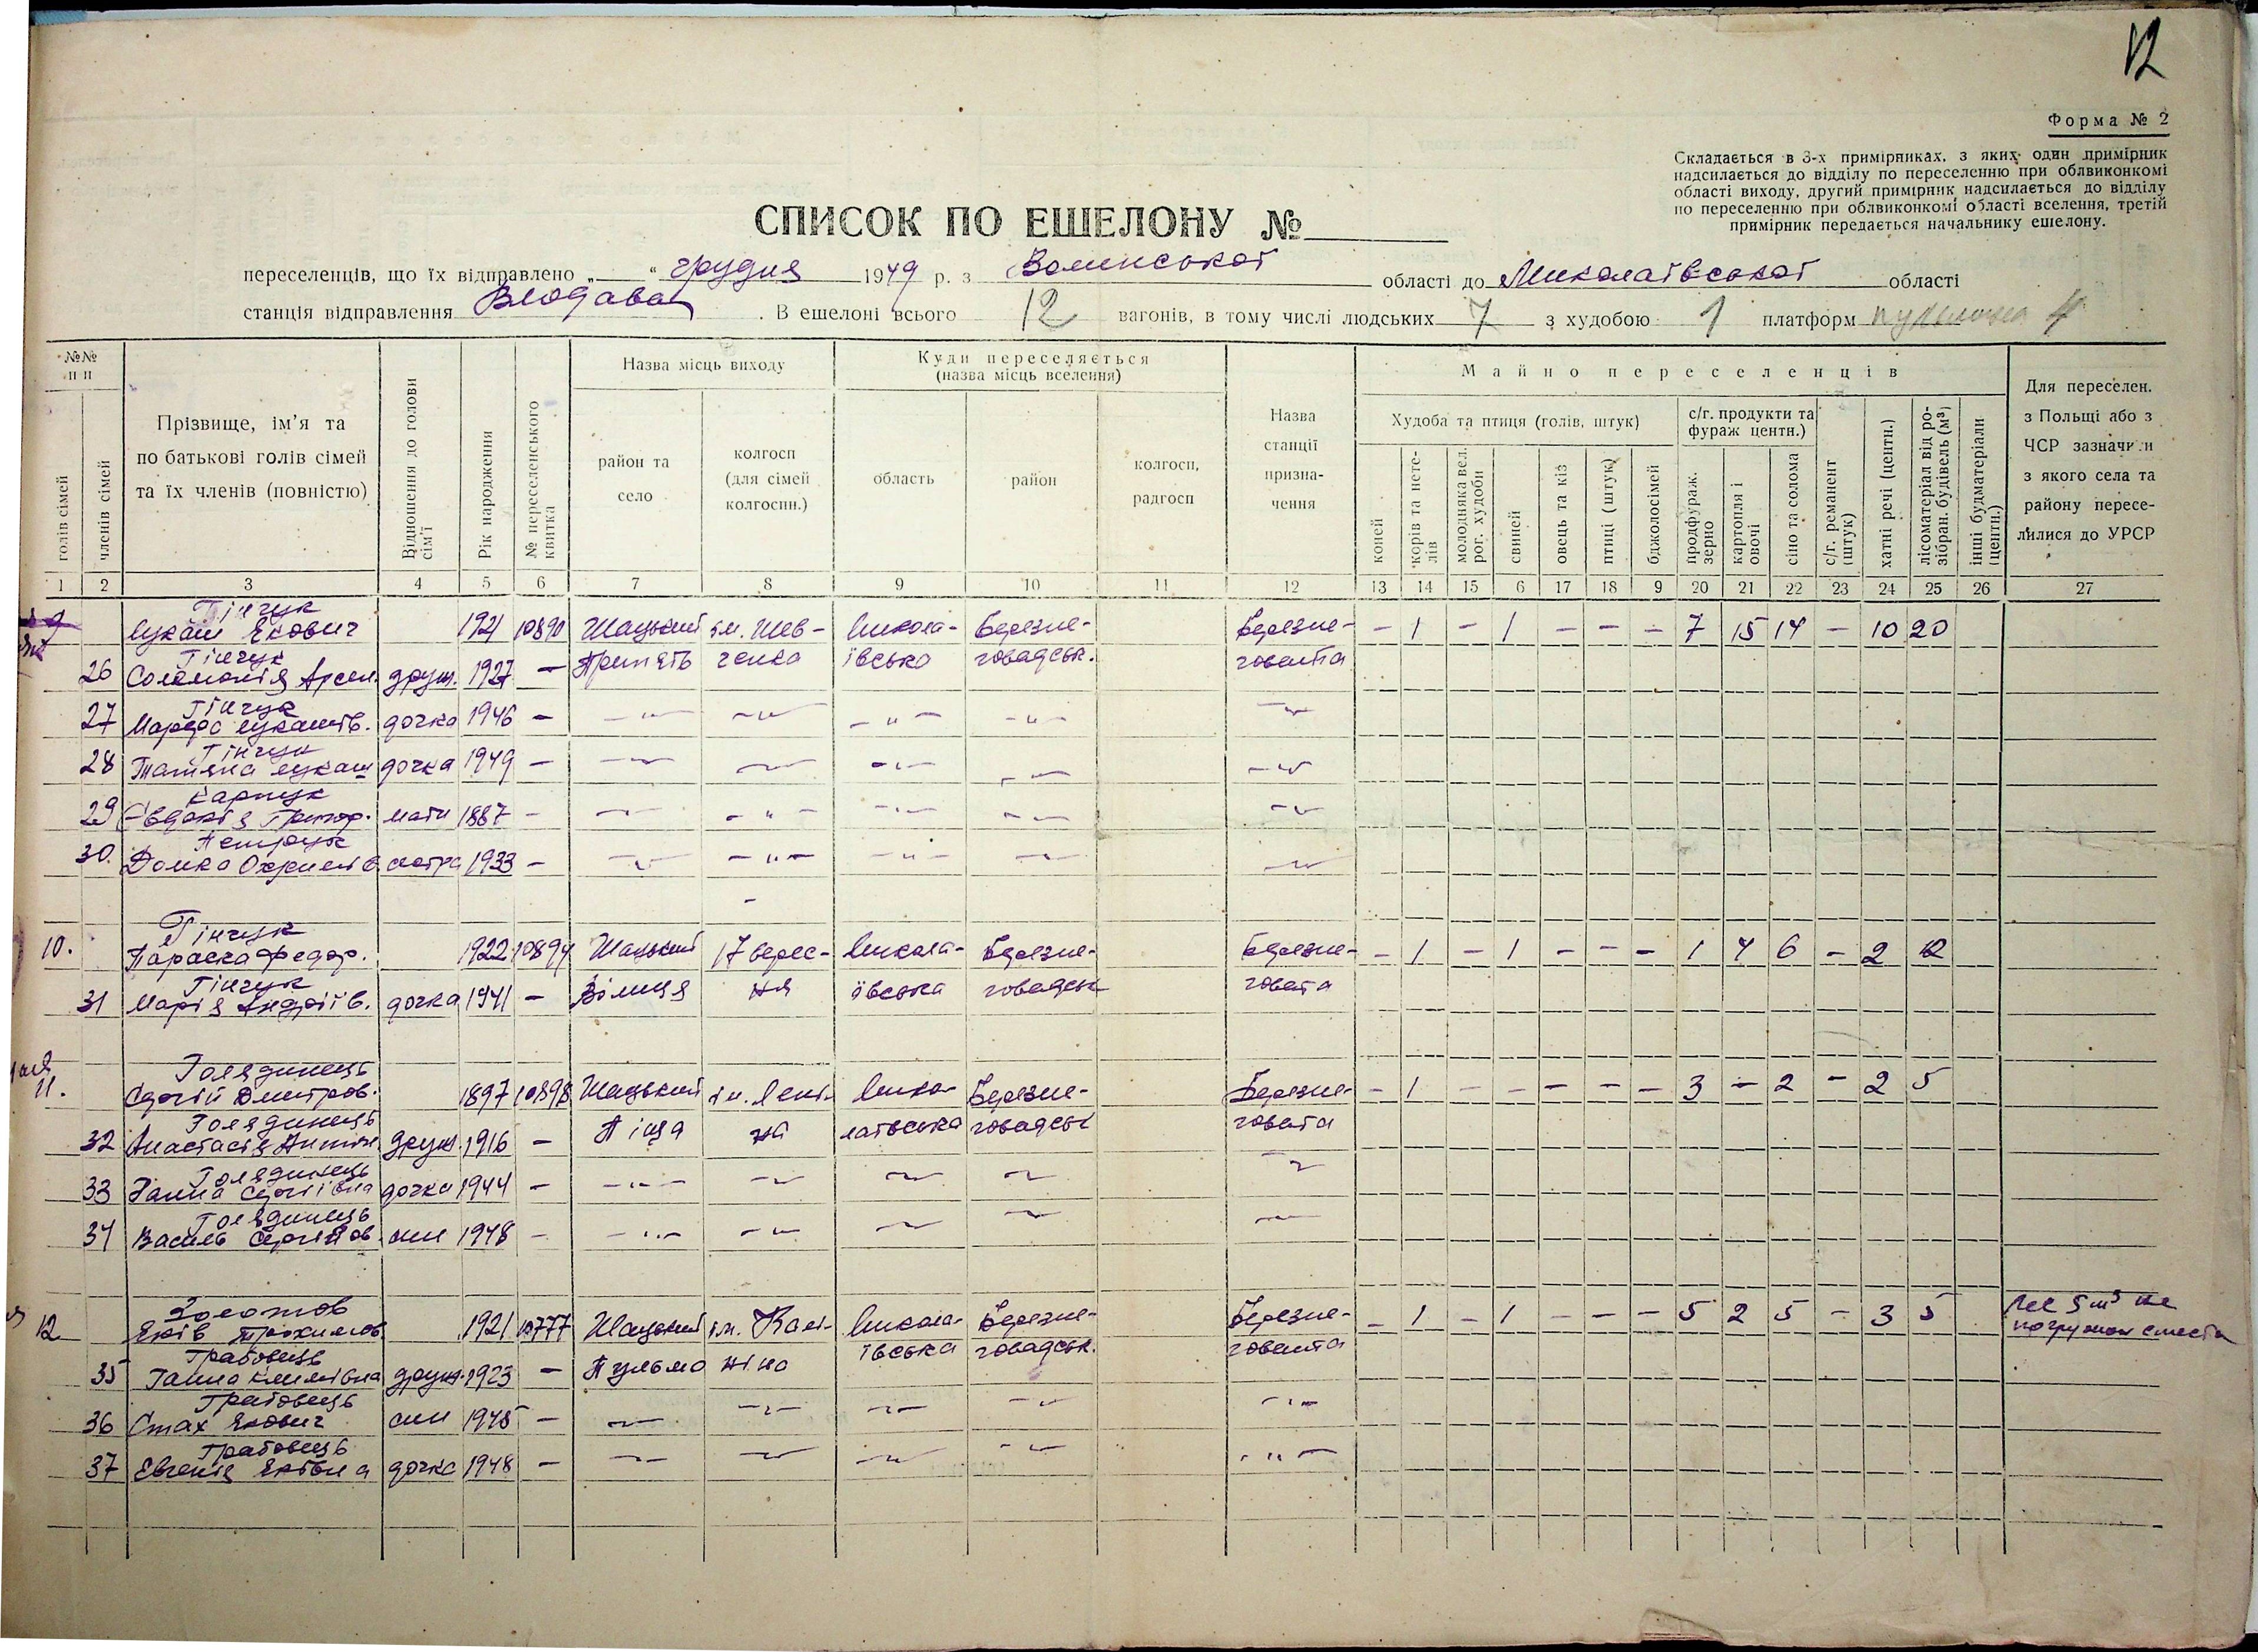 12
Форма № 2
Складається в 3-х примірниках, з яких один примірник
надсилається до відділу по переселенню при облвиконкомі
області виходу, другий примірник надсилається до відділу
по переселенню при облвиконкомі області вселення, третій
примірник передається начальнику ешелону.
СПИСОК ПО ЕШЕЛОНУ №
переселенців, що їх відправлено „ “ грудня 1949 р. з Волинської області до Миколаївської області
станція відправлення Влодава . В ешелоні всього 12 вагонів, в тому числі людських 7 з худобою 1 платформ 4
№№ п п
голів сімей
членів сімей
Прізвище, ім'я та по батькові голів сімей та їх членів (повністю)
Відношення до голови сім'ї
Рік народження
№ переселенського квитка
Назва місць виходу
район та село
колгосп (для сімей колгоспн.)
Куди переселяється (назва місць вселення)
область
район
колгосп, радгосп
Назва станції призначення
Майно переселенців
Худоба та птиця (голів, штук)
коней
корів та нетелів
молодняка вел. рог. худоби
свиней
овець та кіз
птиці (штук)
бджолосімей
с/г. продукти та фураж центн.)
продфураж. зерно
картопля і овочі
сіно та солома
с/г. реманент (штук)
хатні речі (центн.)
лісоматеріал від розібран. будівель (м³)
інші будматеріали (центн.)
Для переселен. з Польщі або з ЧСР зазначити з якого села та району переселилися до УРСР
1 2 3 4 5 6 7 8 9 10 11 12 13 14 15 6 17 18 9 20 21 22 23 24 25 26 27
9 Гінчук
Лукаш Якович 1921 10890 Шацький ім. Шев- Микола- Березне- Березне- - 1 - 1 - - - 7 15 14 - 10 20
Гінчук Припять ченка ївська говадськ. говата
26 Соломонія Арсен. друж. 1927 -
Гінчук
27 Марфа Лукашів. дочка 1946 - -"- -"- -"- -"- -"-
Гінчук
28 Татяна Лукаш дочка 1949 - -"- -"- -"- -"- -"-
Карпук
29 Євдокія Григор. мати 1887 - -"- -"- -"- -"- -"-
Петрук
30. Домка Охримів. сестра 1933 - -"- -"- -"- -"- -"-
Гінчук
10. Параска Федор. 1922 10894 Шацький 17 верес- Микола- Березне- Березне- - 1 - 1 - - - 1 4 6 - 2 12
Гінчук Вілиця ня ївська говадськ говата
31 Марія Андріїв. дочка 1941 -
Голядинець
11. Сергій Дмитров. 1897 10898 Шацький ім. Лені- Мико- Березне- Березне- - 1 - - - - - 3 - 2 - 2 5
Голядинець Піща на лаївська говадськ говата
32 Анастасія Антон. друж. 1916 -
Голядинець
33 Ганна Сергіївна дочка 1944 - -"- -"- -"- -"- -"-
Голядинець
34 Василь Сергійов. син 1948 - -"- -"- -"- -"- -"-
12 Золотов
Яків Трохимов. 1921 10777 Шацький ім. Калі- Микола- Березне- Березне- - 1 - 1 - - - 5 2 5 - 3 5 Лес 5 м³ не
Грабовець Пульмо ніна ївська говадськ. говата
35 Ганна Климівна друж. 1923 -
Грабовець
36 Стах Якович син 1945 - -"- -"- -"- -"- -"-
Грабовець
37 Евгенія Яківна дочка 1948 - -"- -"- -"- -"- -"-